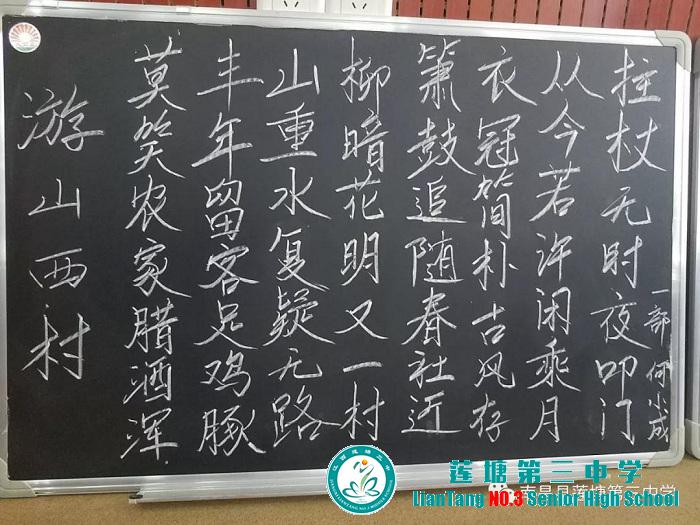 游山西村
莫笑农家腊酒浑
丰年留客足鸡豚
山重水复疑无路
柳暗花明又一村
箫鼓追随春社近
衣冠简朴古风存
从今若许闲乘月
拄杖无时夜叩门
一部 何小成
莲塘第三中学
LianTang NO.3 Senior High School
南昌县莲塘第三中学